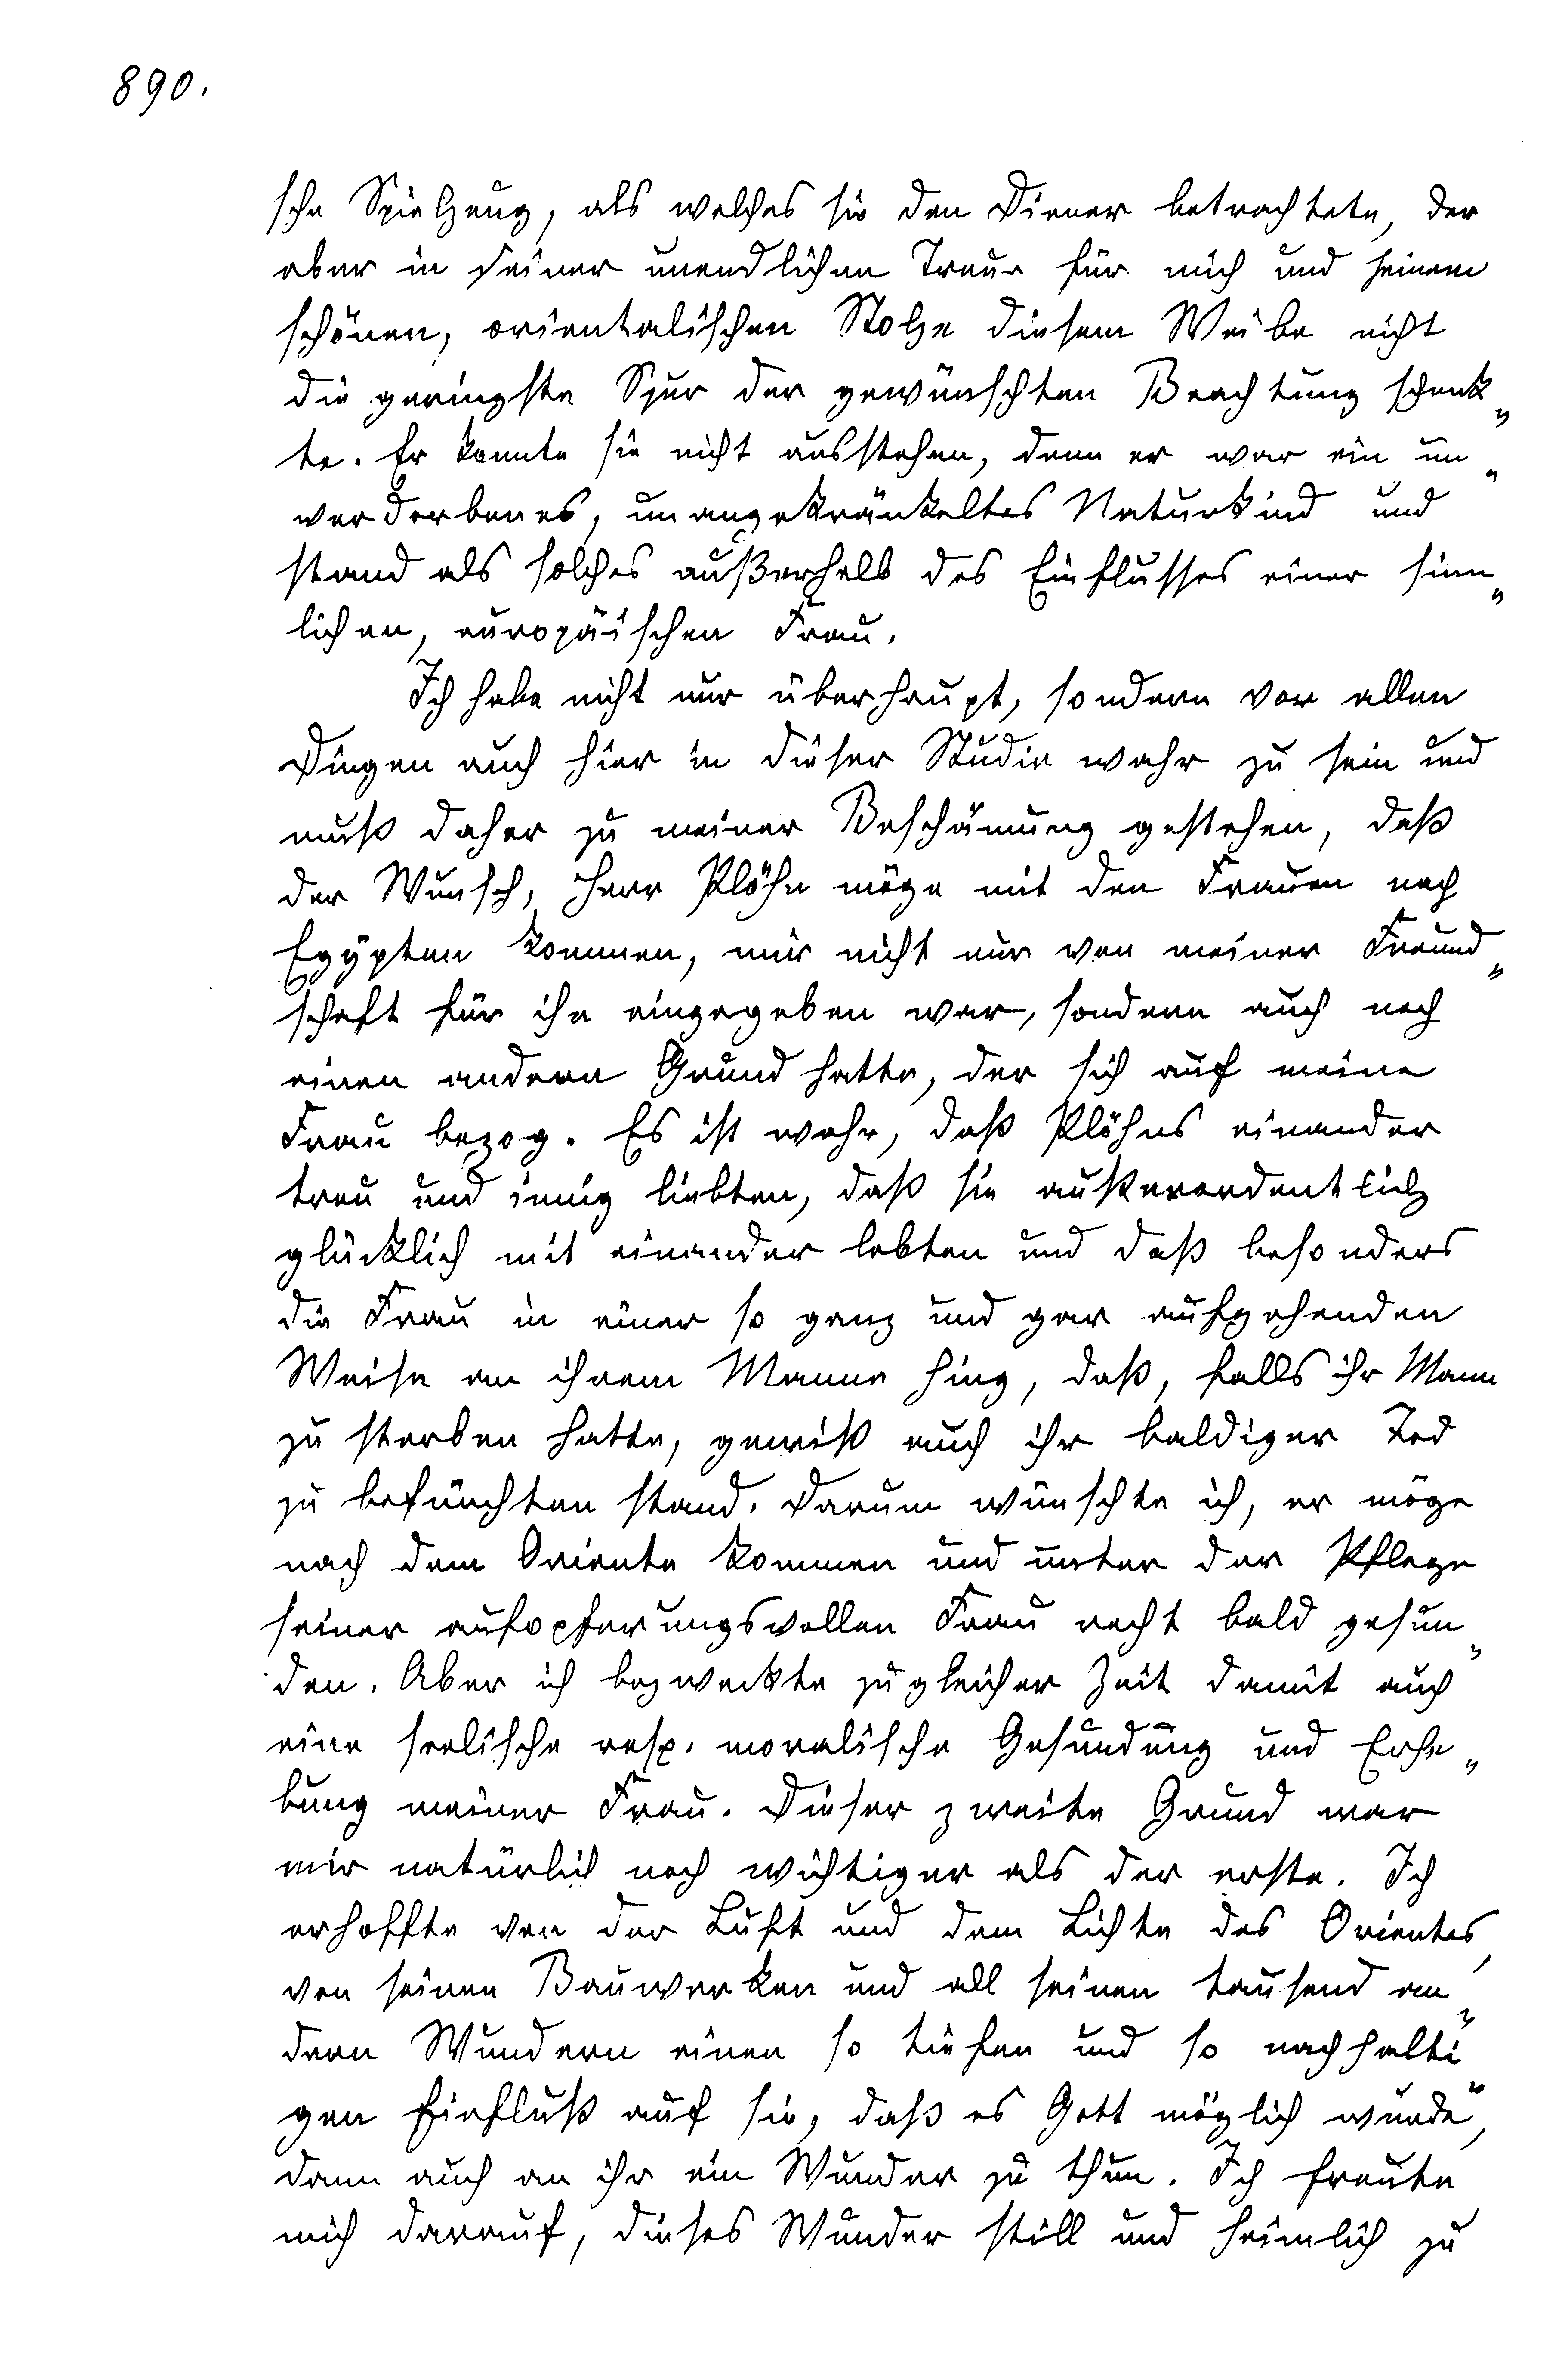 890.
sche Spielzeug, als welches sie den Diener betrachtete, der
aber in seiner unendlichen Treue für mich und seinem
schönen, orientalischen Stolze diesem Weibe nicht
die geringste Spur der gewünschten Beachtung schenk„
te. Er konnte sie nicht ausstehen, denn er war ein un„
verdorbenes, unangekränkeltes Naturkind und
stand als solches außerhalb des Einflusses einer sinn„
lichen, europäischen Frau.
Ich habe nicht nur überhaupt, sondern vor allen
Dingen auch hier in dieser Studie wahr zu sein und
muß daher zu meiner Beschämung gestehen, daß
der Wunsch, Herr Plöhn möge mit den Frauen nach
Egypten kommen, mir nicht nur von meiner Freund„
schaft für ihn eingegeben war, sondern auch noch
einen andern Grund hatte, der sich auf meine
Frau bezog. Es ist wahr, daß Plöhns einander
treu und innig liebten, daß sie außerordentlich
glücklich mit einander lebten und daß besonders
die Frau in einer so ganz und gar aufgehenden
Weise an ihrem Manne hing, daß, falls ihr Mann
zu sterben hatte, gewiß auch ihr baldiger Tod
zu befürchten stand. Darum wünschte ich, er möge
nach dem Oriente kommen und unter der Pflege
seiner aufopferungsvollen Frau recht bald gesun„
den. Aber ich bezweckte zu gleicher Zeit damit auch
eine seelische resp. moralische Gesundung und Erhe„
bung meiner Frau. Dieser zweite Grund war
mir natürlich noch wichtiger als der erste. Ich
erhoffte von der Luft und dem Lichte des Orientes,
von seinen Bauwerken und all seinen tausend an„
dern Wundern einen so tiefen und so nachhalti„
gen Einfluß auf sie, daß es Gott möglich wurde,
dann auch an ihr ein Wunder zu thun. Ich freute
mich darauf, dieses Wunder still und heimlich zu